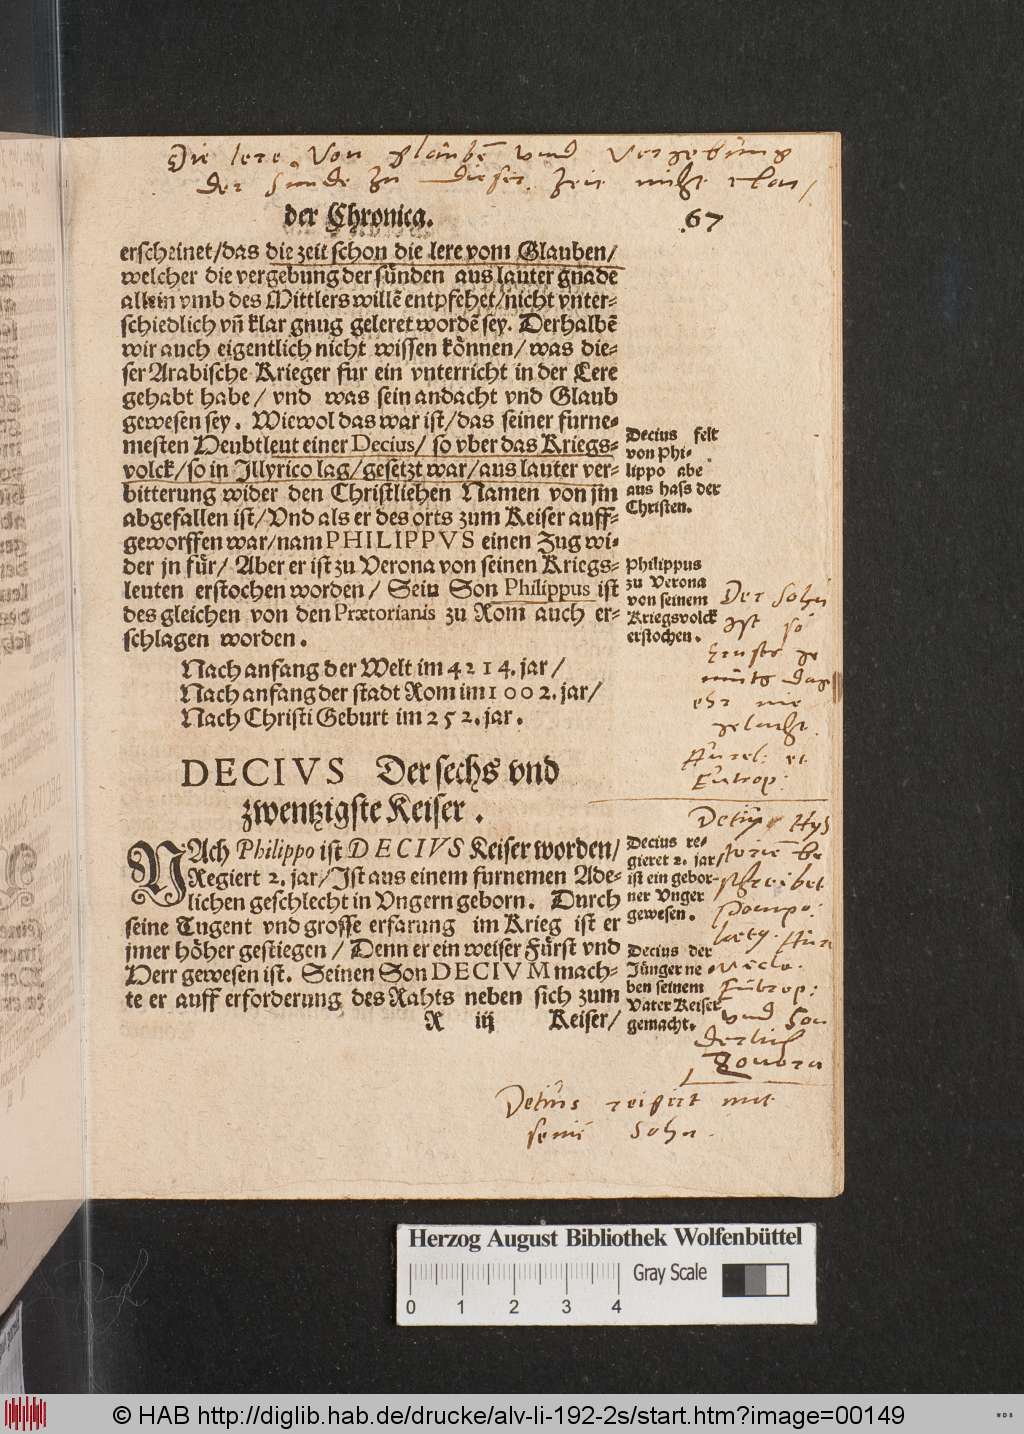 Die lere von glaubē vnd vergebung
der sunde zu dieser zeit nicht clar/
der Chronica.
67
erscheinet/das die zeit schon die lere vom Glauben/
welcher die vergebung der sünden aus lauter gnade
allein vmb des Mittlers willē entpfehet/nicht vnter-
schiedlich vñ klar gnug geleret wordē sey. Derhalbē
wir auch eigentlich nicht wissen können/ was die-
ser Arabische Krieger fur ein vnterricht in der Lere
gehabt habe/ vnd was sein andacht vnd Glaub
gewesen sey. Wiewol das war ist/das seiner furne-
mesten Heubtleut einer Decius/ so vber das Kriegs-
volck/so in Illyrico lag/gesetzt war/aus lauter ver-
bitterung wider den Christlichen Namen von jm
abgefallen ist/Vnd als er des orts zum Keiser auff-
geworffen war/nam PHILIPPVS einen Zug wi-
der jn für/ Aber er ist zu Verona von seinen Kriegs-
leuten erstochen worden/ Sein Son Philippus ist
des gleichen von den Prætorianis zu Rom auch er-
schlagen worden.
Decius felt
von Phi-
lippo abe
aus hass der
Christen.
Philippus
zu Verona
von seinem
Kriegsvolck
erstochen.
Der Sohn
ist so
ernste ge
müts das
ehr nie
gelacht.
Aurel: et
Eutrop:
Nach anfang der Welt im 4214. jar/
Nach anfang der stadt Rom im 1002. jar/
Nach Christi Geburt im 252. jar.
DECIVS Der sechs vnd
zwentzigste Keiser.
NAch Philippo ist DECIVS Keiser worden/
Regiert 2. jar/Ist aus einem furnemen Ade-
lichen geschlecht in Vngern geborn. Durch
seine Tugent vnd grosse erfarung im Krieg ist er
jmer höher gestiegen/ Denn er ein weiser Fürst vnd
Herr gewesen ist. Seinen Son DECIVM mach-
te er auff erforderung des Rahts neben sich zum
R iij Keiser/
Decius re-
gieret 2. jar
ist ein gebor-
ner Vnger
gewesen.
Decius der
Jünger ne-
ben seinem
Vater Keiser
gemacht.
Detius Hys
storien be
schreibet
Pompo:
laety. Aur
Victo.
Eutrop:
vnd Son
derlich
Zonora
Detius reigirt mit
seinē Sohn.
Herzog August Bibliothek Wolfenbüttel
Gray Scale
0 1 2 3 4
© HAB http://diglib.hab.de/drucke/alv-li-192-2s/start.htm?image=00149